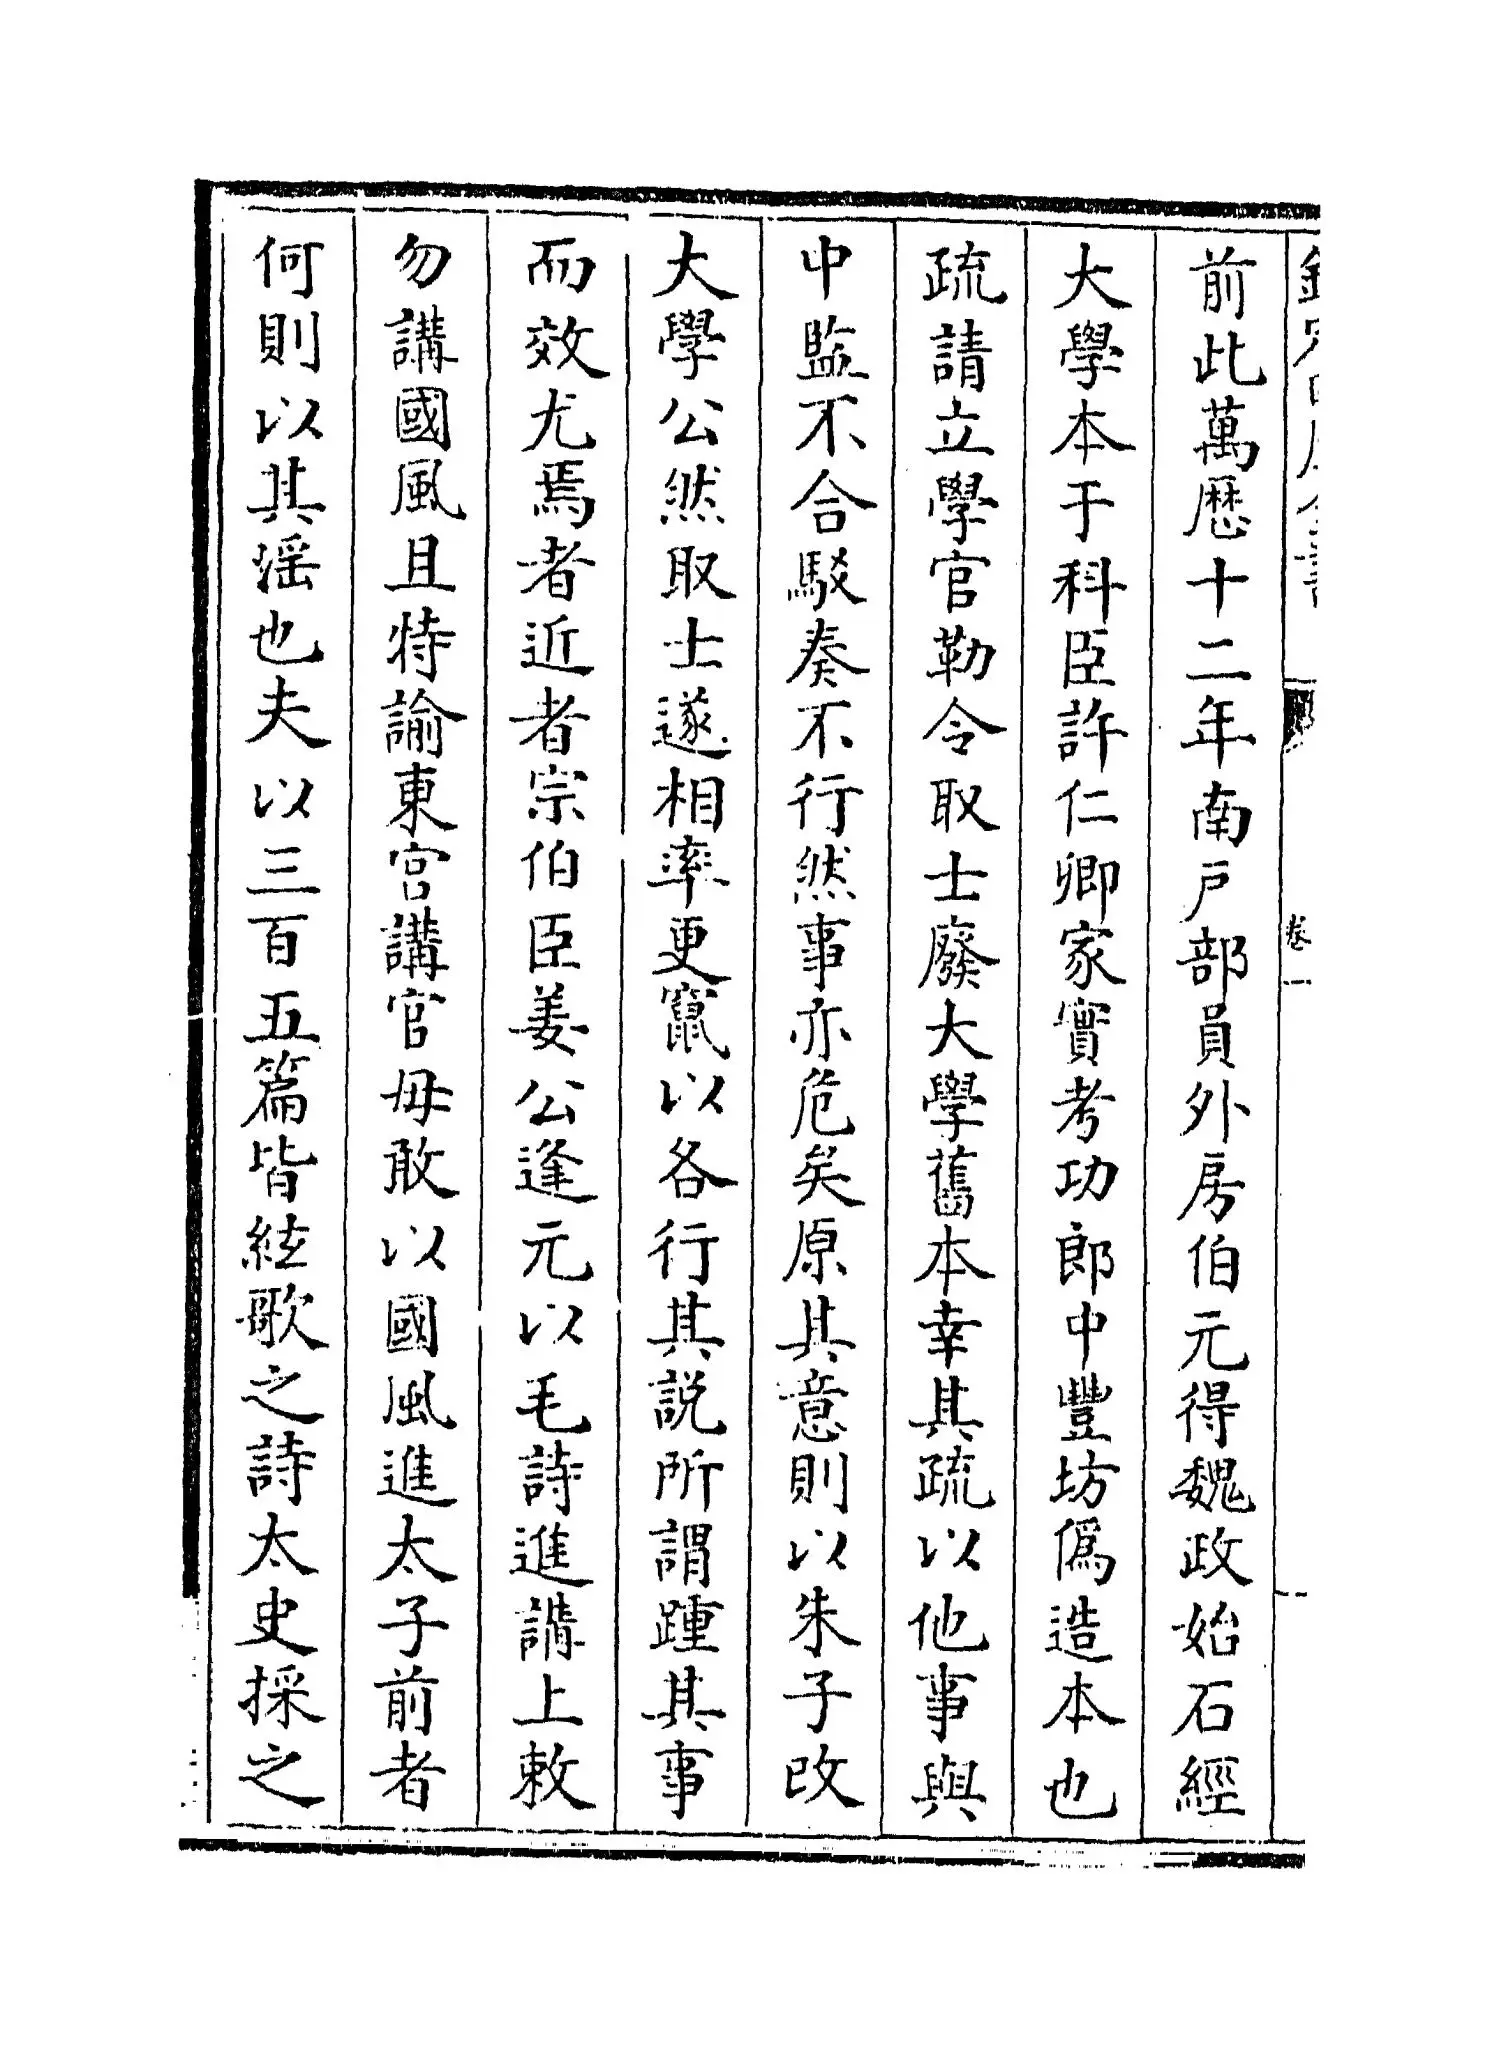 卷一
前此萬歷十二年南戸部員外房伯元得魏政始石經
大學本于科臣許仁卿家實考功郎中豐坊偽造本也
疏請立學官勒令取士廢大學舊本幸其疏以他事與
中監不合駁奏不行然事亦危矣原其意則以朱子改
大學公然取士遂相率更竄以各行其説所謂踵其事
而效尤焉者近者宗伯臣姜公逢元以毛詩進講上敕
勿講國風且特諭東宮講官毋敢以國風進太子前者
何則以其淫也夫以三百五篇皆絃歌之詩太史採之